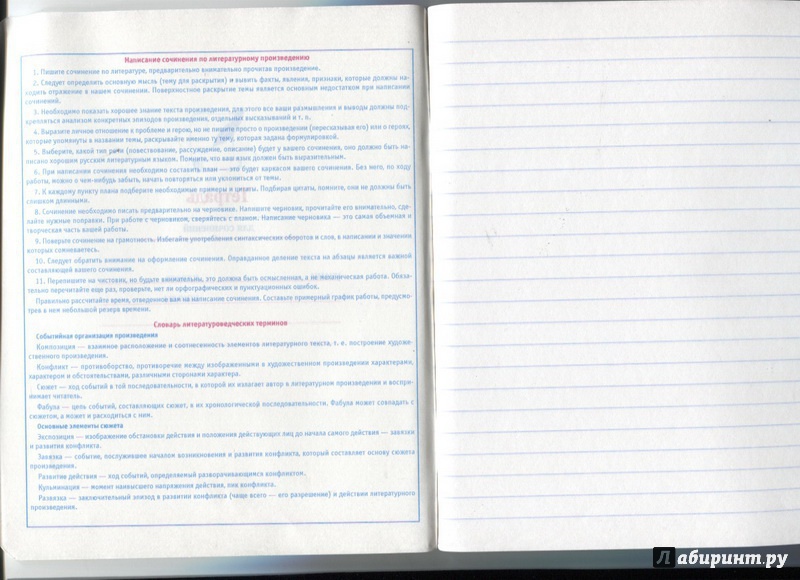 Написание сочинения по литературному произведению
1. Пишите сочинение по литературе, предварительно внимательно прочитав произведение.
2. Следует определить основную мысль (тему для раскрытия) и выявить факты, явления, признаки, которые должны на-
ходить отражение в нашем сочинении. Поверхностное раскрытие темы является основным недостатком при написании
сочинений.
3. Необходимо показать хорошее знание текста произведения, для этого все ваши размышления и выводы должны под-
крепляться анализом конкретных эпизодов произведения, отдельных высказываний и т. п.
4. Выразите личное отношение к проблеме и герою, но не пишите просто о произведении (пересказывая его) или о героях,
которые упомянуты в названии темы, раскрывайте именно ту тему, которая задана формулировкой.
5. Выберите, какой тип речи (повествование, рассуждение, описание) будет у вашего сочинения, оно должно быть на-
писано хорошим русским литературным языком. Помните, что ваш язык должен быть выразительным.
6. При написании сочинения необходимо составить план — это будет каркасом вашего сочинения. Без него, по ходу
работы, можно о чем-нибудь забыть, начать повторяться или уклониться от темы.
7. К каждому пункту плана подберите необходимые примеры и цитаты. Подбирая цитаты, помните, они не должны быть
слишком длинными.
8. Сочинение необходимо писать предварительно на черновике. Напишите черновик, прочитайте его внимательно, сде-
лайте нужные поправки. При работе с черновиком, сверяйтесь с планом. Написание черновика — это самая объемная и
творческая часть вашей работы.
9. Поверьте сочинение на грамотность. Избегайте употребления синтаксических оборотов и слов, в написании и значении
которых сомневаетесь.
10. Следует обратить внимание на оформление сочинения. Оправданное деление текста на абзацы является важной
составляющей вашего сочинения.
11. Перепишите на чистовик, но будьте внимательны, это должна быть осмысленная, а не механическая работа. Обяза-
тельно перечитайте еще раз, проверьте, нет ли орфографических и пунктуационных ошибок.
Правильно рассчитайте время, отведенное вам на написание сочинения. Составьте примерный график работы, предусмо-
трев в нем небольшой резерв времени.
Словарь литературоведческих терминов
Событийная организация произведения
Композиция — взаимное расположение и соотнесенность элементов литературного текста, т. е. построение художе-
ственного произведения.
Конфликт — противоборство, противоречие между изображенными в художественном произведении характерами,
характером и обстоятельствами, различными сторонами характера.
Сюжет — ход событий в той последовательности, в которой их излагает автор в литературном произведении и воспри-
нимает читатель.
Фабула — цепь событий, составляющих сюжет, в их хронологической последовательности. Фабула может совпадать с
сюжетом, а может и расходиться с ним.
Основные элементы сюжета
Экспозиция — изображение обстановки действия и положения действующих лиц до начала самого действия — завязки
и развития конфликта.
Завязка — событие, послужившее началом возникновения и развития конфликта, который составляет основу сюжета
произведения.
Развитие действия — ход событий, определяемый разворачивающимся конфликтом.
Кульминация — момент наивысшего напряжения действия, пик конфликта.
Развязка — заключительный эпизод в развитии конфликта (чаще всего — его разрешение) и действии литературного
произведения.
Тетрадь
для сочинений
Лабиринт.ру